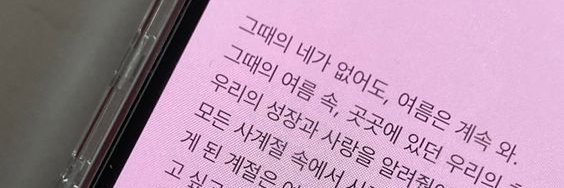 그때의 네가 없어도, 여름은 계속 와.
그때의 여름 속, 곳곳에 있던 우리의
우리의 성장과 사랑을 알려줬
모든 사계절 속에서
게 된 계절은
고 싶